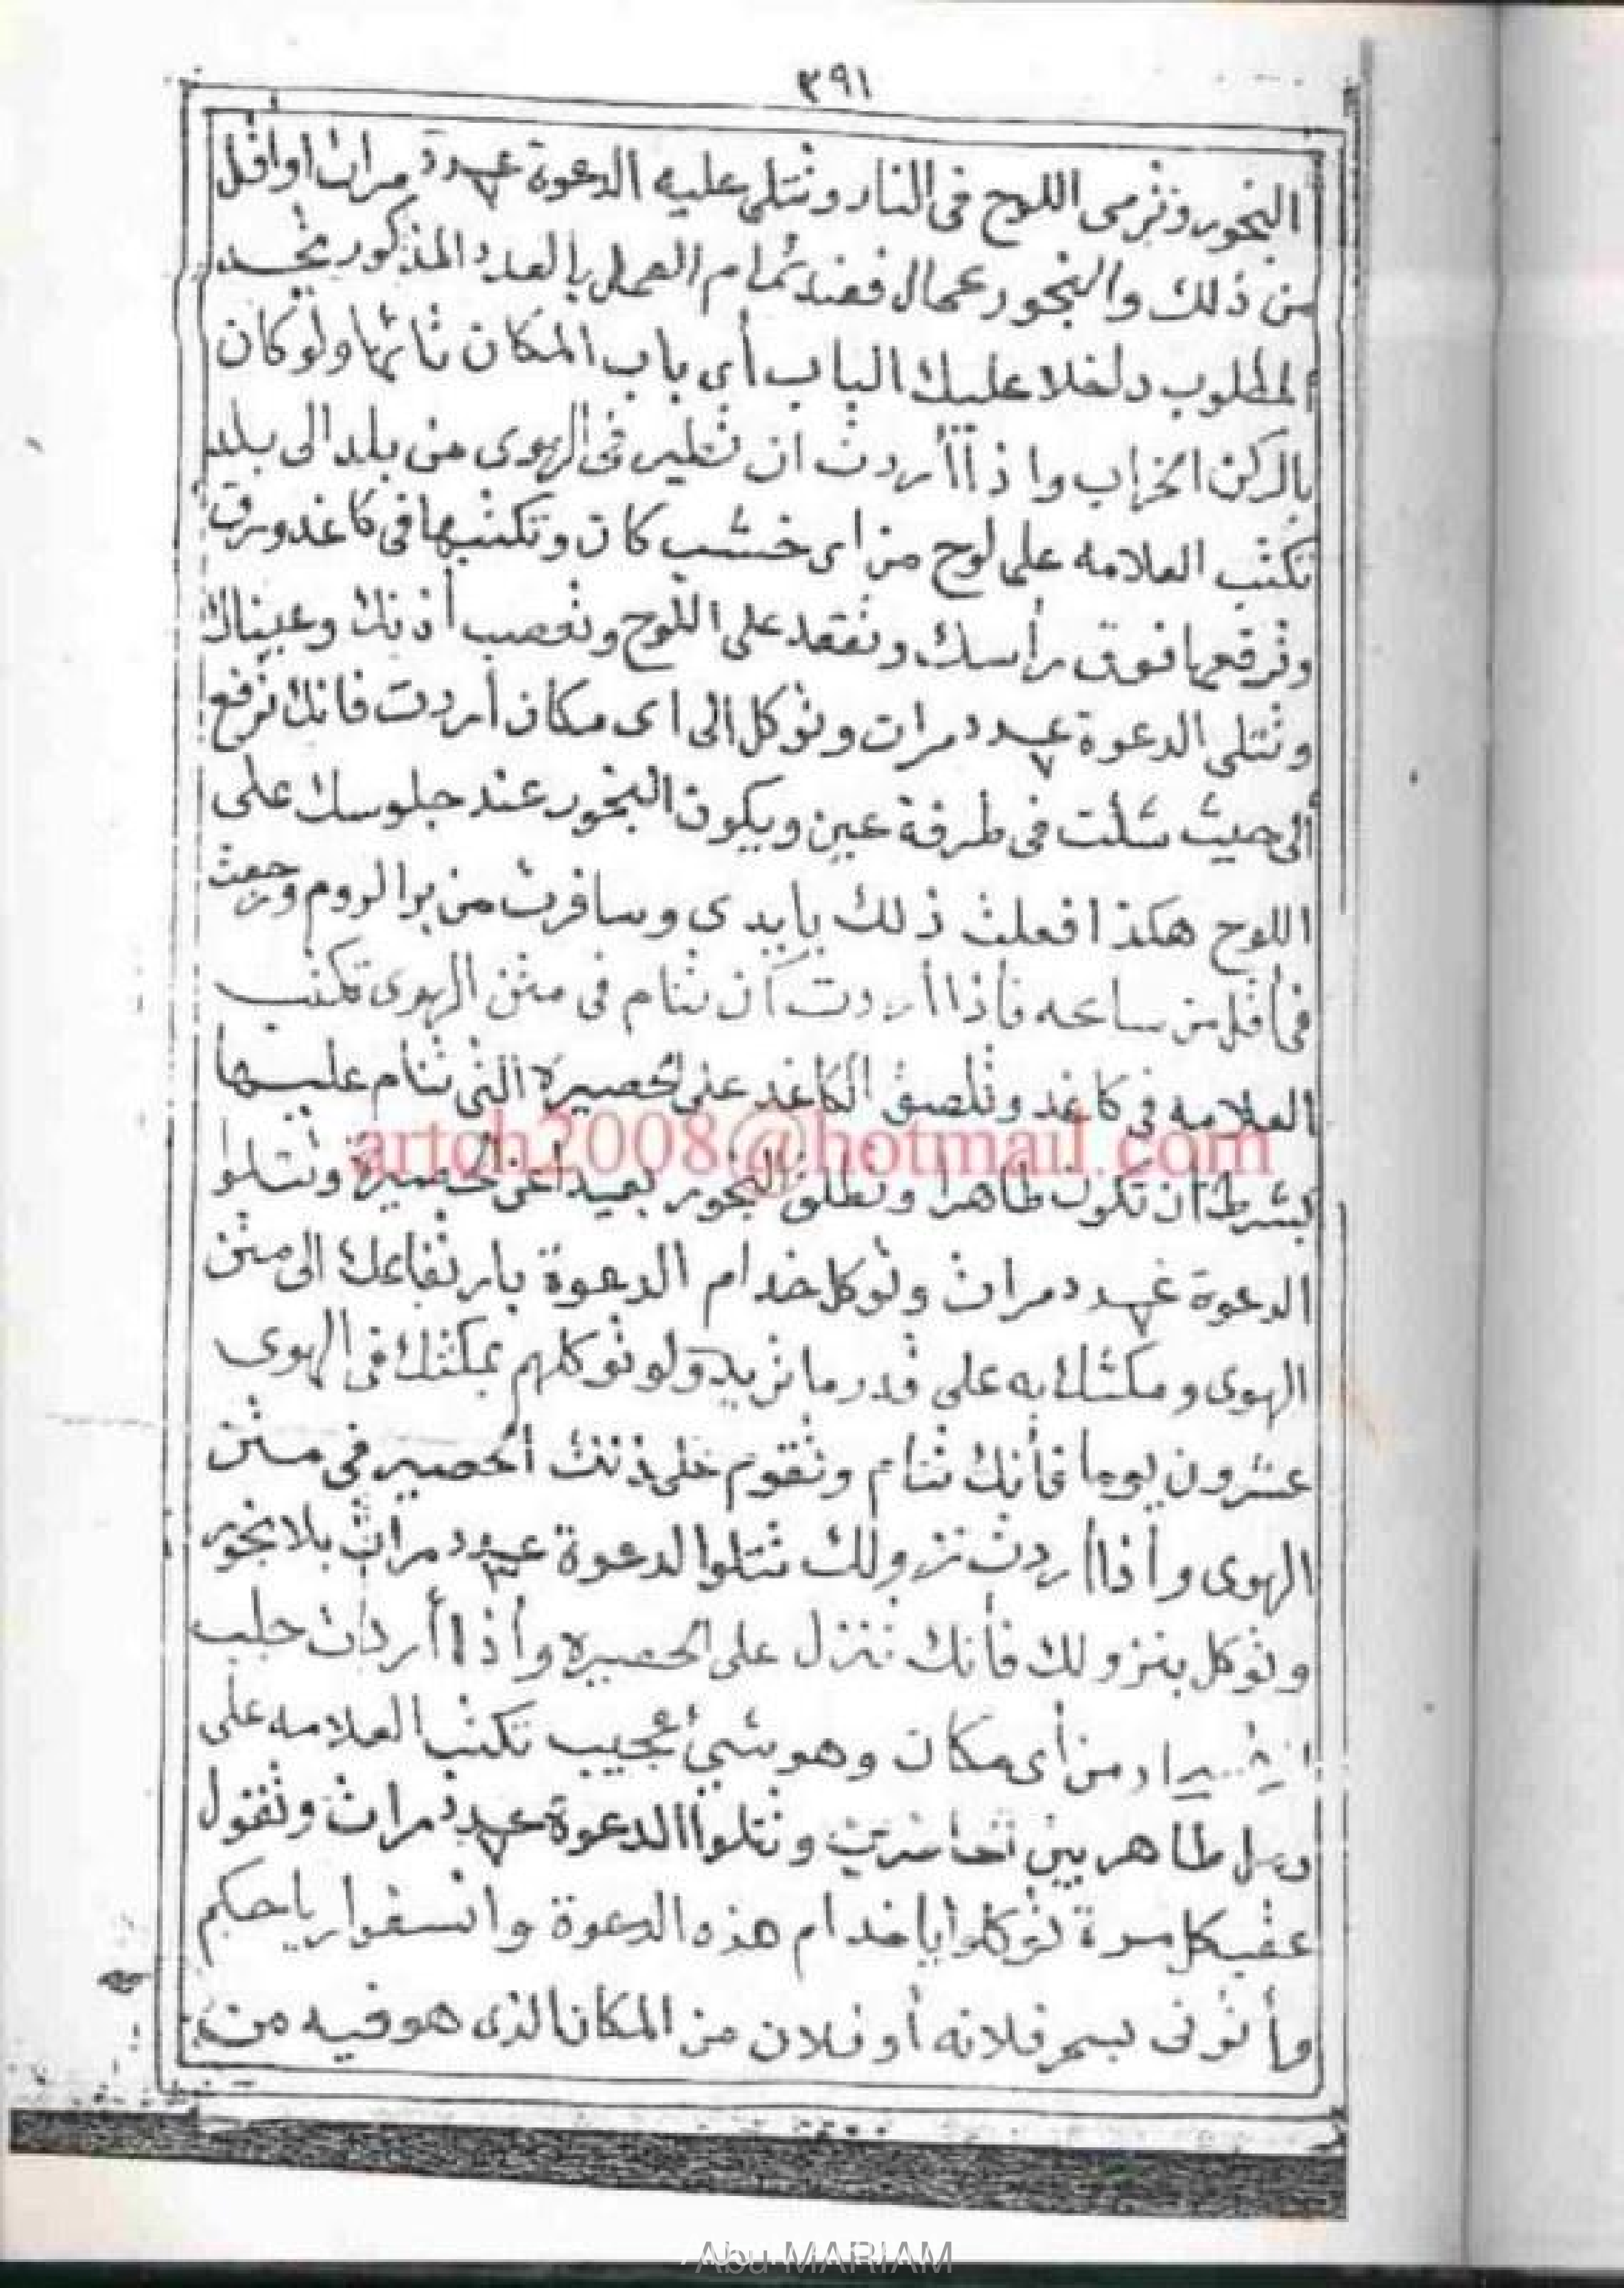 ٣٩١
البخور وترمى اللوح فى النار وتتلى عليه الدعوة عدد ٧ مرات او اقل
من ذلك والبخور عمال فعند تمام العمل بالعدد المذكور تجد
المطلوب داخلا عليك الباب أى باب المكان نائما ولو كان
بالركن الخراب واذا أردت ان تطير فى الهوى من بلد الى بلد
تكتب العلامه على لوح من اى خشب كان وتكتبها فى كاغد ورق
وترفعها فوق رأسك وتقعد على اللوح وتعصب أذنك وعيناك
وتتلى الدعوة عدد ٧ مرات وتوكل الى اى مكان أردت فانك ترفع
الى حيث شئت فى طرفة عين ويكون البخور عند جلوسك على
اللوح هكذا فعلت ذلك بايدى وسافرت من بر الروم ورجعت
فى أقل من ساعه فأذا أردت أن تنام فى متن الهوى تكتب
العلامه فى كاغد وتلصق الكاغد على الحصيرة التى تنام عليها
artch2008@hotmail.com
بشرط ان تكون طاهرا وتطلق البخور بعيدا عن الحصيرة وتتلوا
الدعوة عدد ٧ مرات وتوكل خدام الدعوة بارتفاعك الى متن
الهوى ومكثك به على قدر ما تريد ولو توكلهم بمكثك فى الهوى
عشرون يوما فأنك تنام وتقوم على ذلك الحصير فى متن
الهوى وأذا أردت نزولك تتلوا الدعوة عدد ٣ مرات بلا بخور
وتوكل بنزولك فأنك تنزل على الحصيره وأذا أردت جلب
من أى مكان وهو شئ عجيب تكتب العلامه على
طاهر بين وتتلوا الدعوة عدد ٧ مرات وتقول
عقب كل مرة توكلوا ياخدام هذه الدعوة
وأتونى فلانه أو فلان من المكان الذى هو فيه من
Abu MARIAM